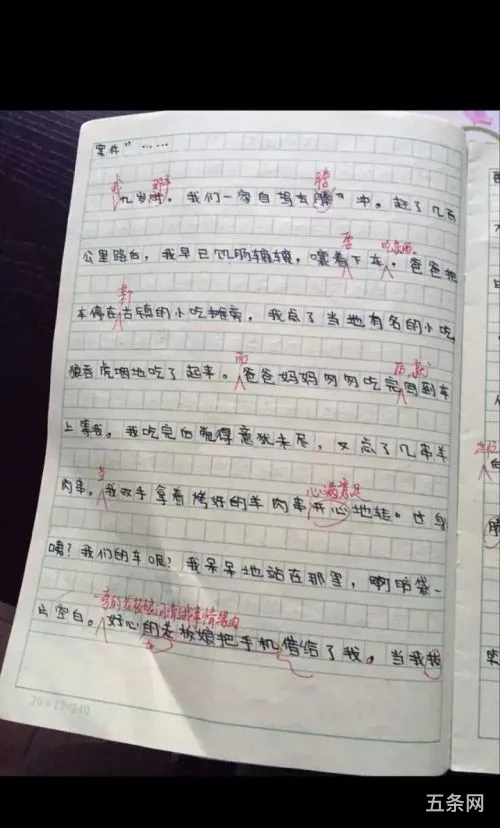 案件”……
我 那年 腾
九岁时。我们一家自驾去腾冲。赶了几百
要 吃东西
公里路后，我早已饥肠辘辘，嚷着下车。爸爸把
车停在古镇的小吃摊旁，我点了当地有名的小吃，
而 后，就
狼吞虎咽地吃了起来。爸爸妈妈匆匆吃完回到车
上等我。我吃完后觉得意犹未尽，又点了几串羊
当 心满意足
肉串。我双手拿着烤好的羊肉串开心地转
咦？我们的车呢？我呆呆地站在那里，脑袋一
旁的老板娘 事情
片空白。好心的老板娘把手机借给了我。当我
五条网